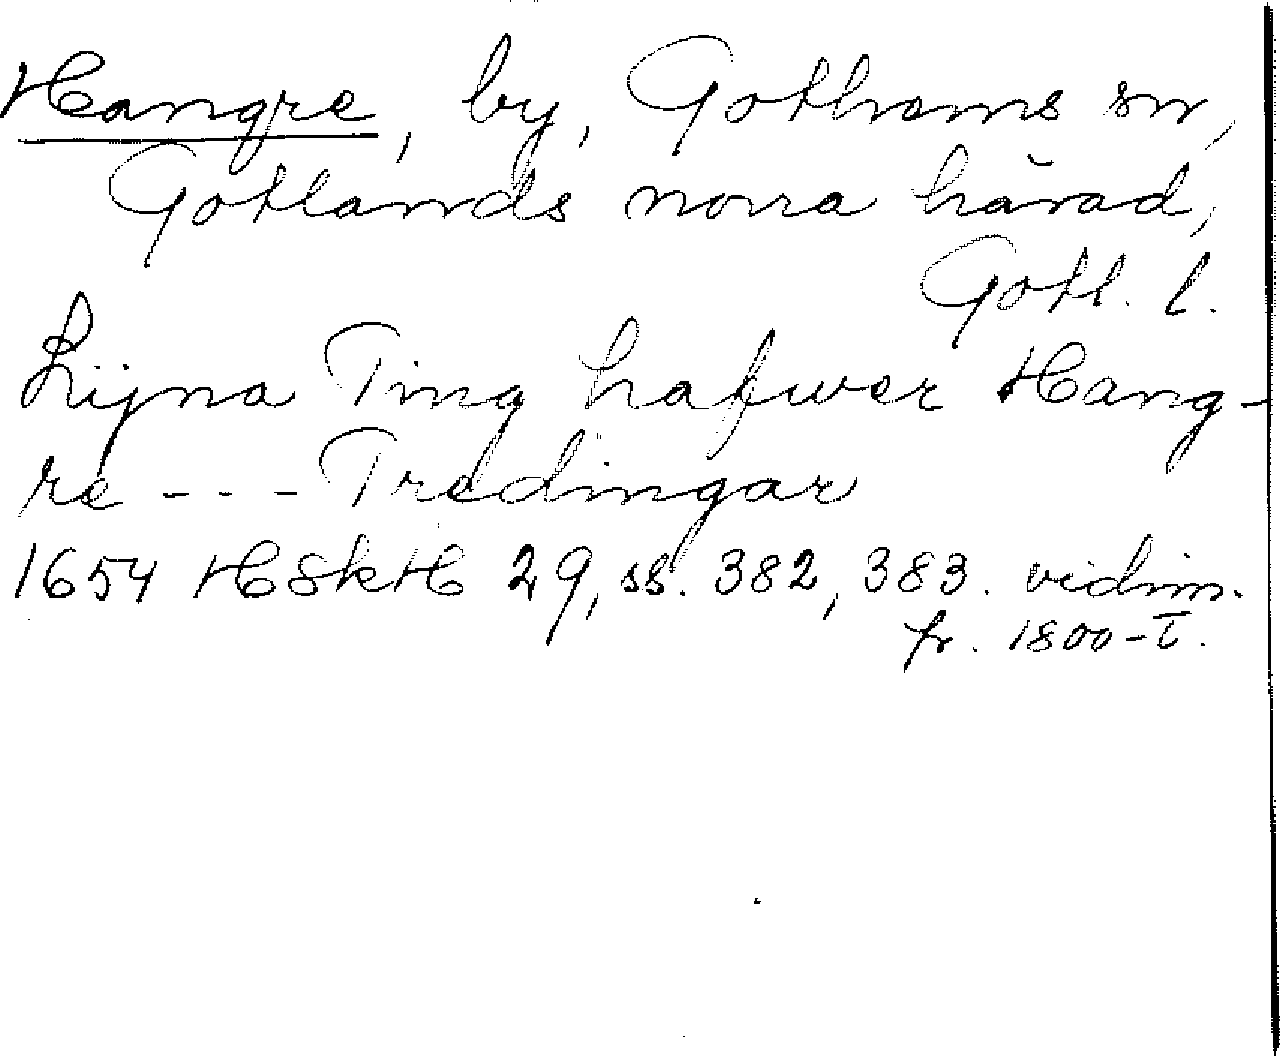 Hangre, by, Gothems sn,
Gotlands norra härad,
Gotl. l.
Lijna Ting hafwer Hang-
re - - - Tredingar
1654 HSkH 29, ss. 382, 383. vidim.
fr. 1800-t.